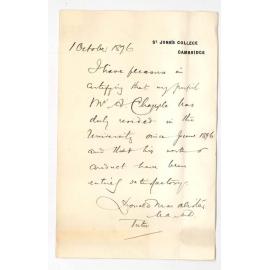 St JOHN'S COLLEGE
CAMBRIDGE
1 October 1896
I have pleasure in
certifying that my pupil
Mr A
has
duly resided in the
University since June 1896
and that his work &
conduct have been
entirely satisfactory.
Donald MacAlister
M.A. M.D.
Tutor